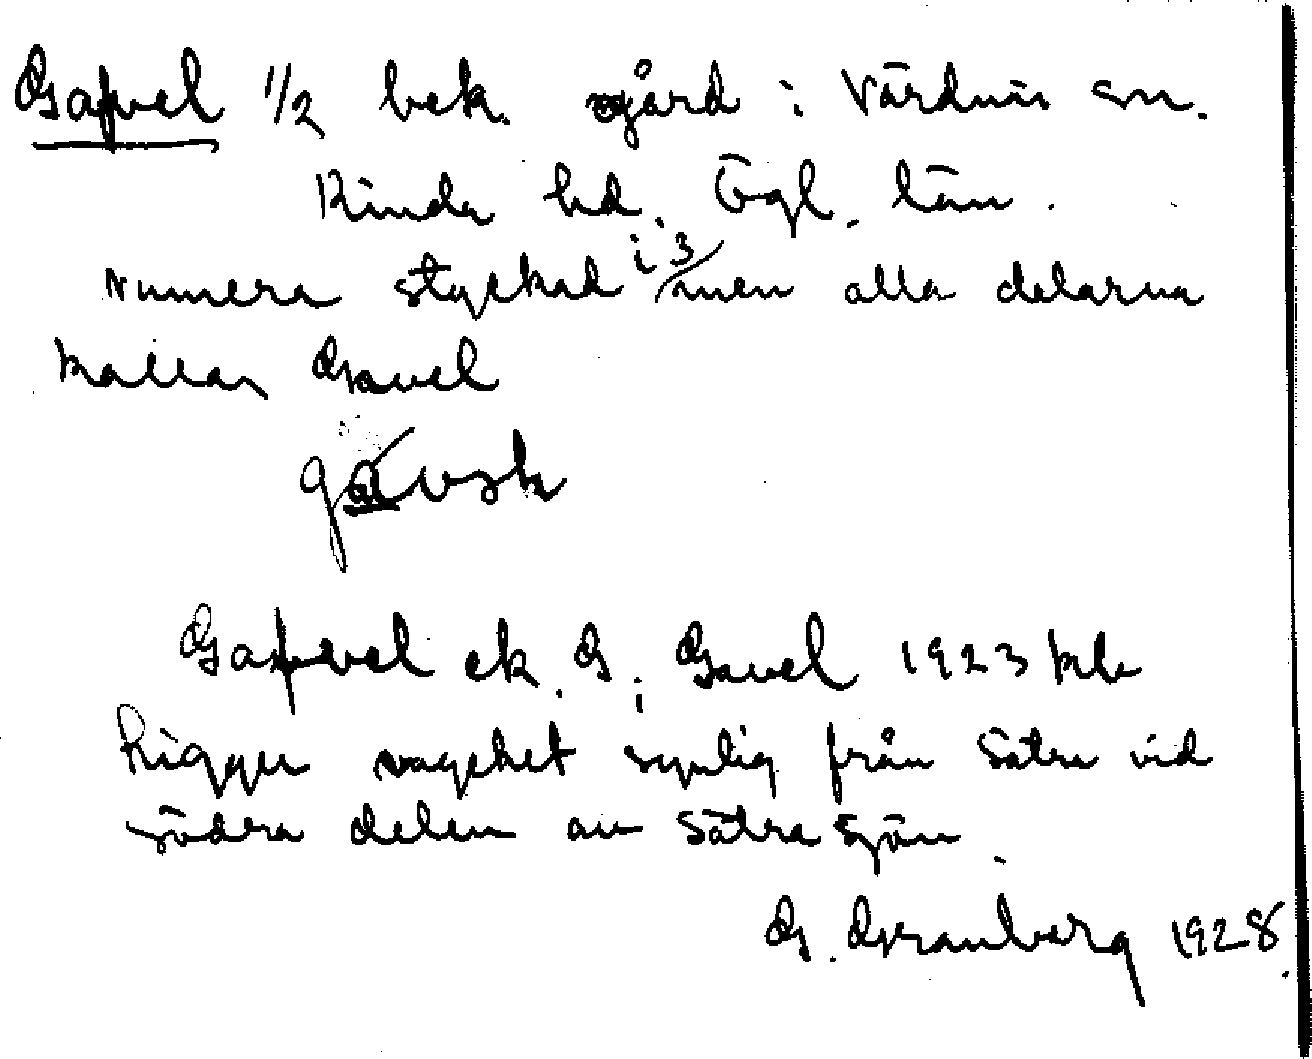 Gafvel 1/2 bek. gård i Vårdnäs sn.
Kinda hd. Ögl. län.
Numera styckad i 3 men alla delarna
kallas Gavel
Gafvel ek. G; Gavel 1923 kbr
ligger mycket synlig från Sätra vid
södra delen av Sätra sjön.
G. Granberg 1928